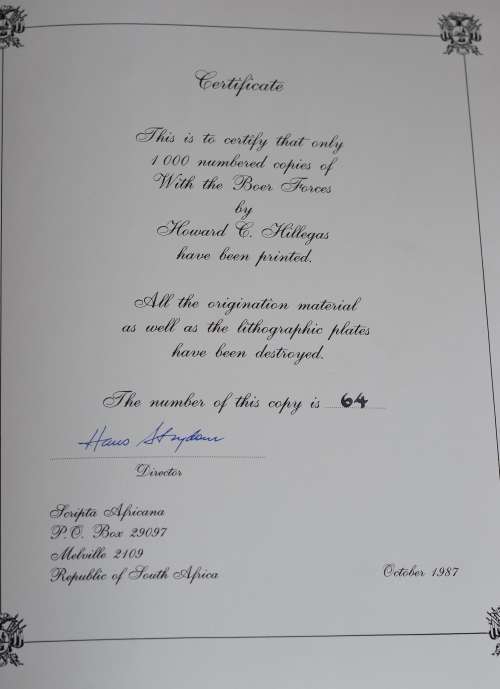 Certificate
This is to certify that only
1 000 numbered copies of
With the Boer Forces
by
Howard C. Hillegas
have been printed.
All the origination material
as well as the lithographic plates
have been destroyed.
The number of this copy is 64
Hans Strydom
Director
Scripta Africana
P.O. Box 29097
Melville 2109
Republic of South Africa
October 1987